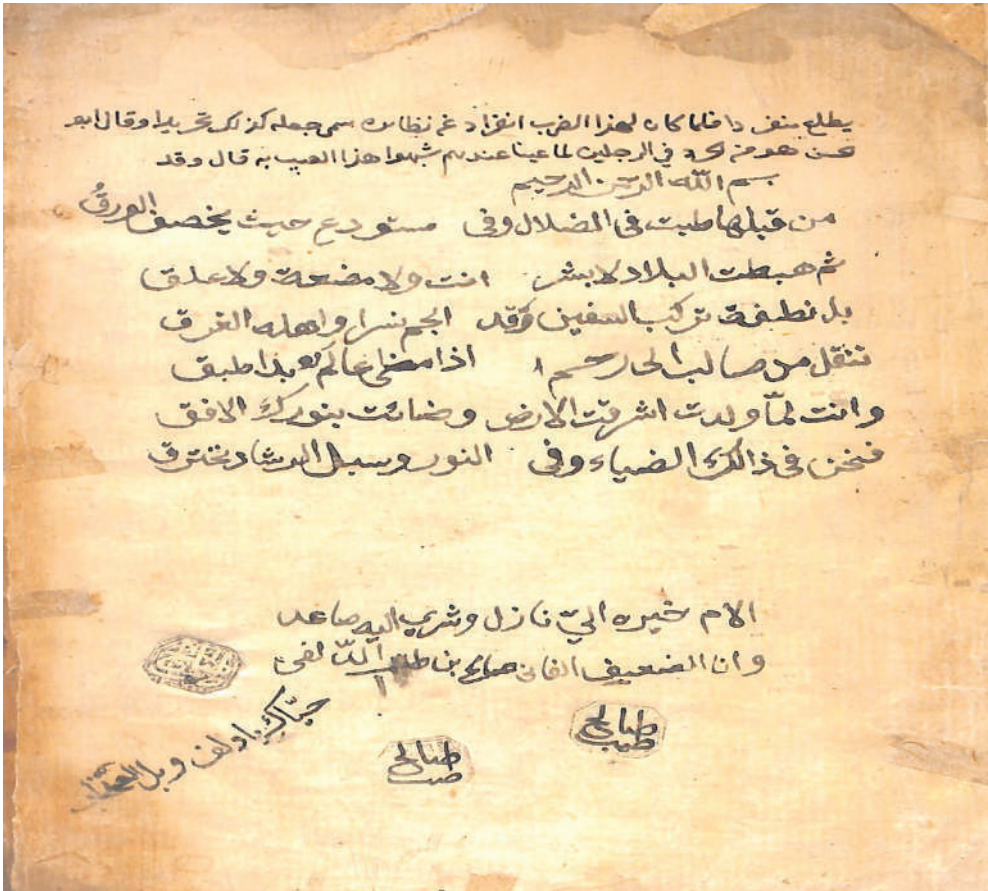 يطلع منفردا فلما كان لهذا الضرب انفراد عن نظائره سمى جعله كذلك تحريدا وقال ابو
الحسن هو من الحرد في الرجلين لما عيبا عندهم شبهوا هذا العيب به قال وقد
بسم الله الرحمن الرحيم
من قبلها طبت فى الضلال وفى مستودع حيث يخصف الورق
ثم هبطت البلاد لا بشر انت ولا مضغة ولا علق
بل نطفة تركب السفين وقد الجم نسرا واهله الغرق
تنقل من صالب الى رحم اذا مضى عالم بدا طبق
وانت لمّا ولدت اشرقت الارض وضائت بنورك الافق
فنحن فى ذالك الضياء وفى النور وسبل الرشاد نخترق
الام خيره اليّ نازل وشري اليه صاعد
وانا الضعيف الفانى صالح بن طيب
صالح طيب
صالح